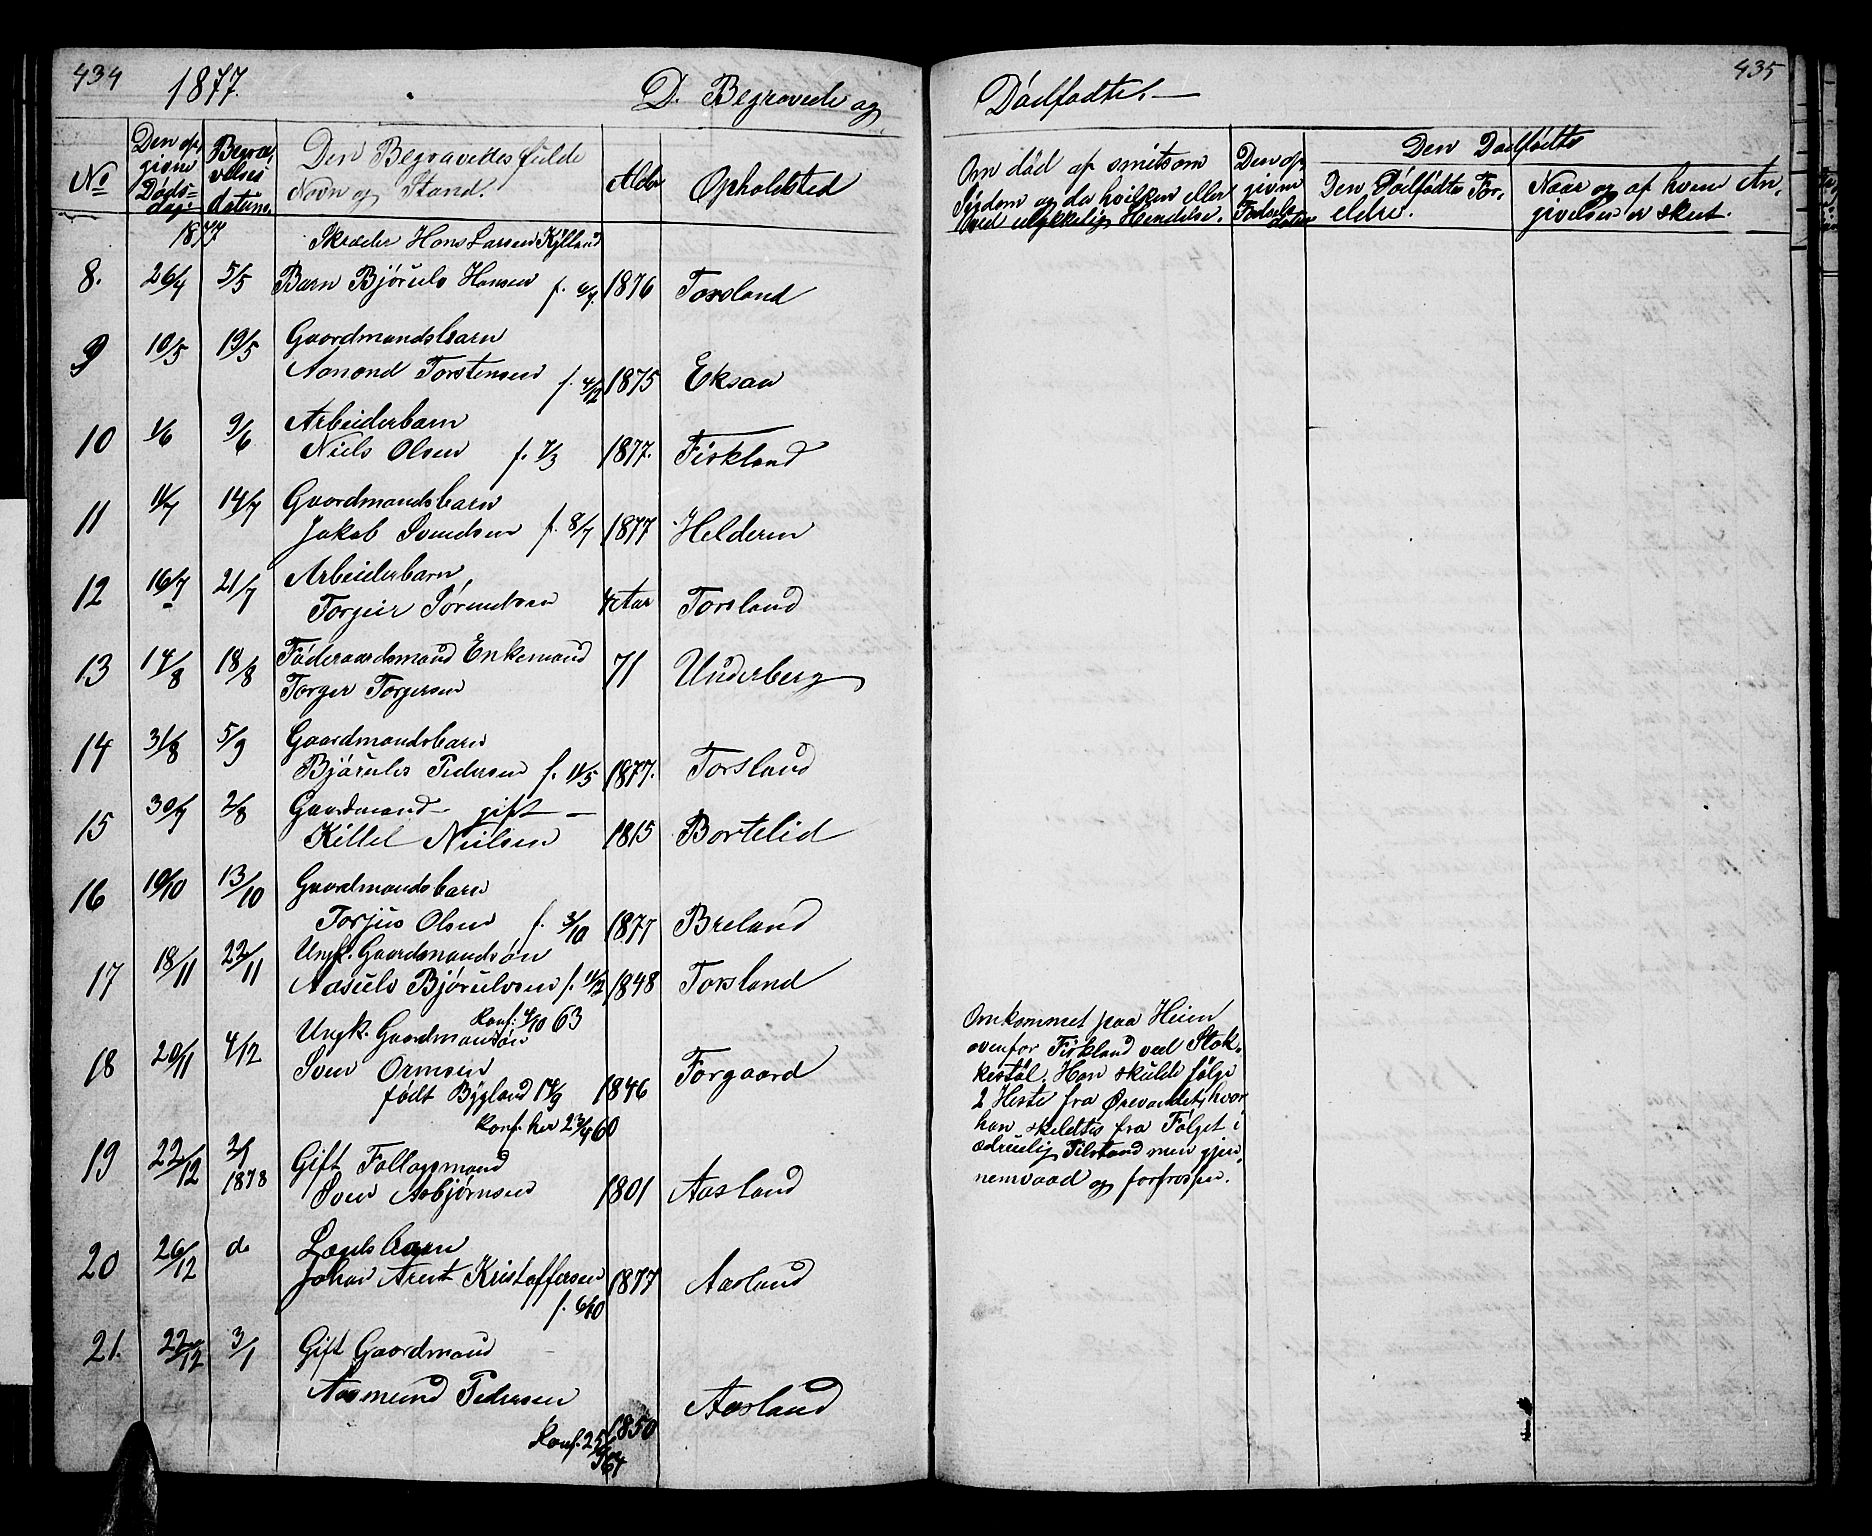 434
1877.
D. Begravede og
Dödfödte.
435
No
Den op-
givne
Döds-
dag.
Begra-
velses
datum.
Den Begravettes fulde
Navn og Stand.
Alder
Opholdsted
Om död af smitsom
Sygdom og da hvilken eller
ved ulykkelig Hendelse.
Den op-
givne
Födsels
datum
Den Dödfödte
Den Dödfödtes For-
eldre.
Naar og af hvem An-
givelsen er skeet.
1877
Skræder Hans Larsen Kylland
8. 26/4 5/5 Barn Bjørulv Hansen f. 6/7. 1876 Torsland
9 10/5 19/5 Gaardmandsbarn
Aanond Torstensen f. 4/12 1875 Eksaa
10 1/6 9/6 Arbeiderbarn
Niels Olsen f. 7/3 1877. Fiskland
11 11/7 14/7 Gaardmandsbarn
Jakob Svendsen f. 8/7 1877 Helderen
12 16/7 21/7 Arbeiderbarn
Torgeir Sørensen 4 Aar Torsland
13 14/8 18/8 Föderaadsmand Enkemand
Torger Torgersen 71 Underberg
14 31/8 5/9 Gaardmandsbarn
Bjørulv Pedersen f. 11/5 1877. Torsland
15 30/7 2/8 Gaardmand - gift -
Kittel Nielsen 1815 Bortelid
16 10/10 13/10 Gaardmandsbarn
Torjus Olsen f. 3/10 1877 Breland
17 18/11 22/11 Ungk. Gaardmandsön
Aasulv Bjørulvsen f. 11/2 1848 Torsland
Konf. 4/10 63
18 20/11 4/12 Ungk. Gaardmansön
Sven Ormsen
födt Bygland 14/9 1846 Forgaard
Konf. her 23/9 60
Omkommet paa Heien
ovenfor Fiskland ved Stok-
kestöl. Han skulde følge
2 Heste fra Ørevandet, hvor
han skeldtes fra Fölget i
ædruelig Tilstand men gjen-
nemvaad og forfrossen.
19 22/12 2/1
1878 Gift Follogsmand
Sven Asbjørnsen 1801 Aasland
20 26/12 do Lægdsbarn
Johan Arnt Kristoffersen 1877 Aasland
f. 6/10
21. 22/12 3/1 Gift Gaardmand
Aasmund Pedersen 1850 Aasland
Konf. 25/9 64